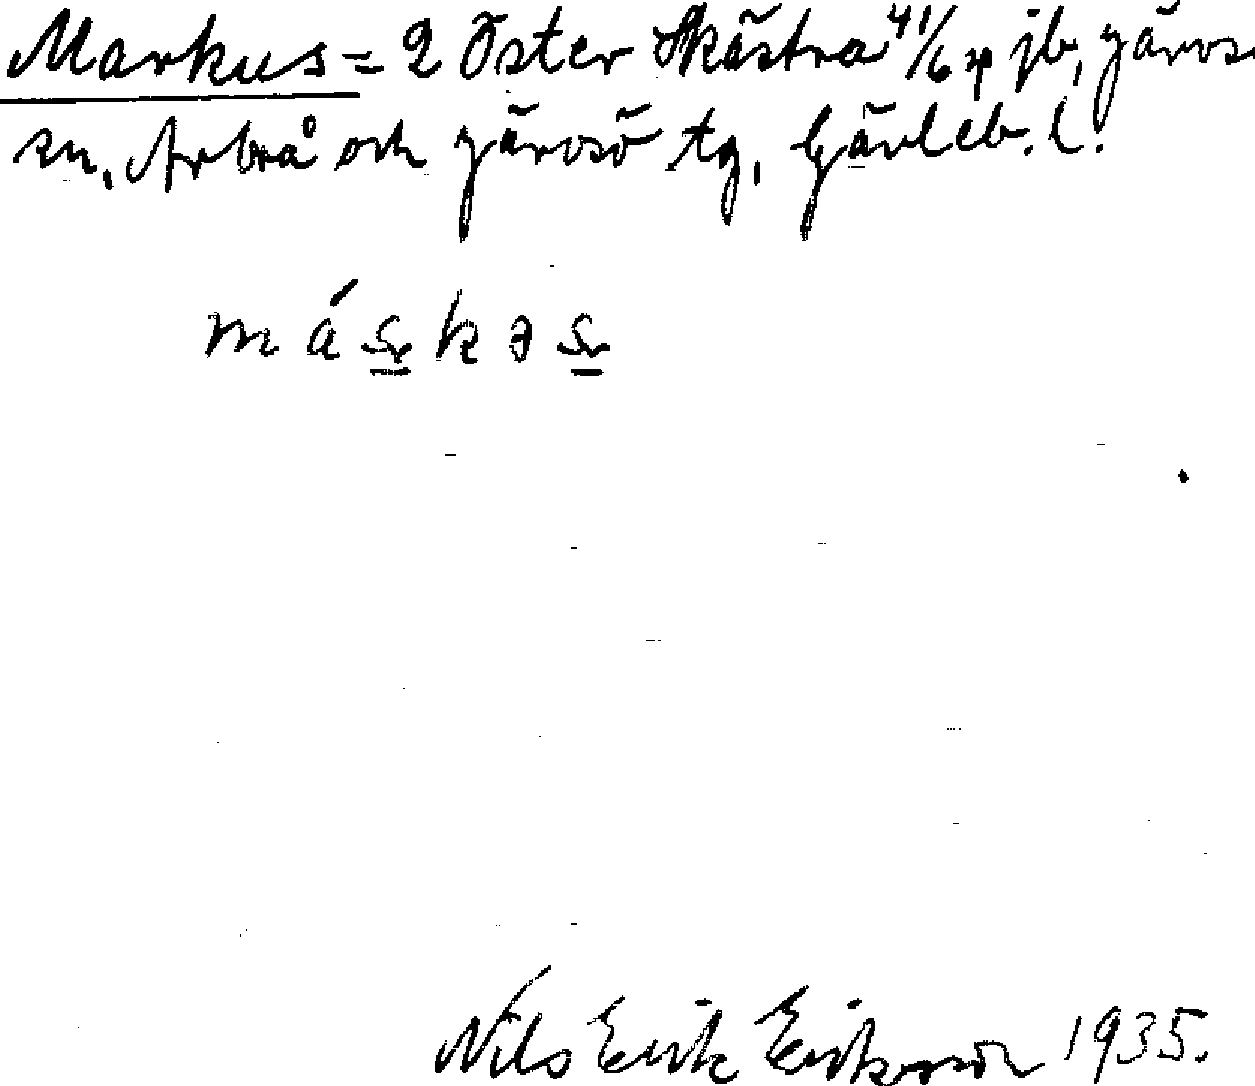 Markus = 2 Öster Skästra 4 1/6 sp jb, Järvsö
sn, Arbrå och Järvsö tg, Gävleb. l.
máskəs
Nils Erik Eriksson 1935.